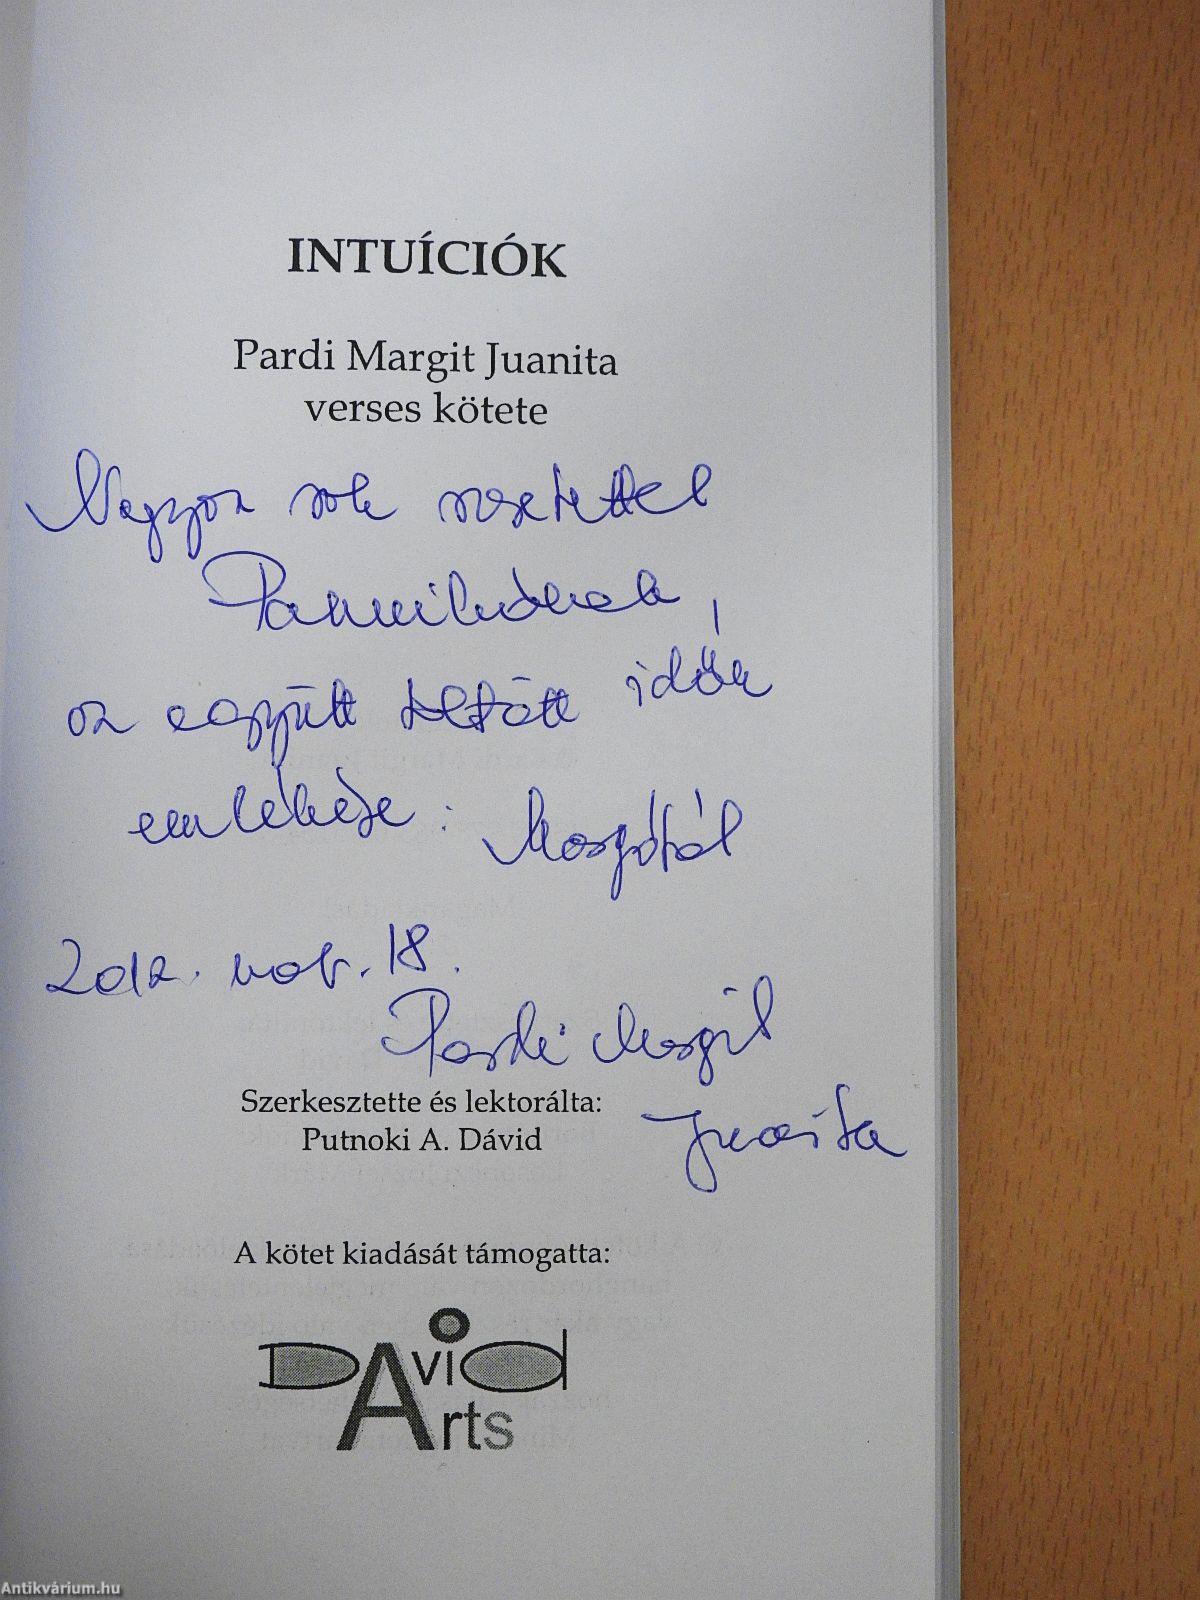 INTUÍCIÓK
Pardi Margit Juanita
verses kötete
Nagyon sok szeretettel
Pannikának,
az együtt töltött idők
emlékére: Margótól
2012. nov. 18.
Pardi Margit
Juanita
Szerkesztette és lektorálta:
Putnoki A. Dávid
A kötet kiadását támogatta:
DAvid
Arts
Antikvárium.hu